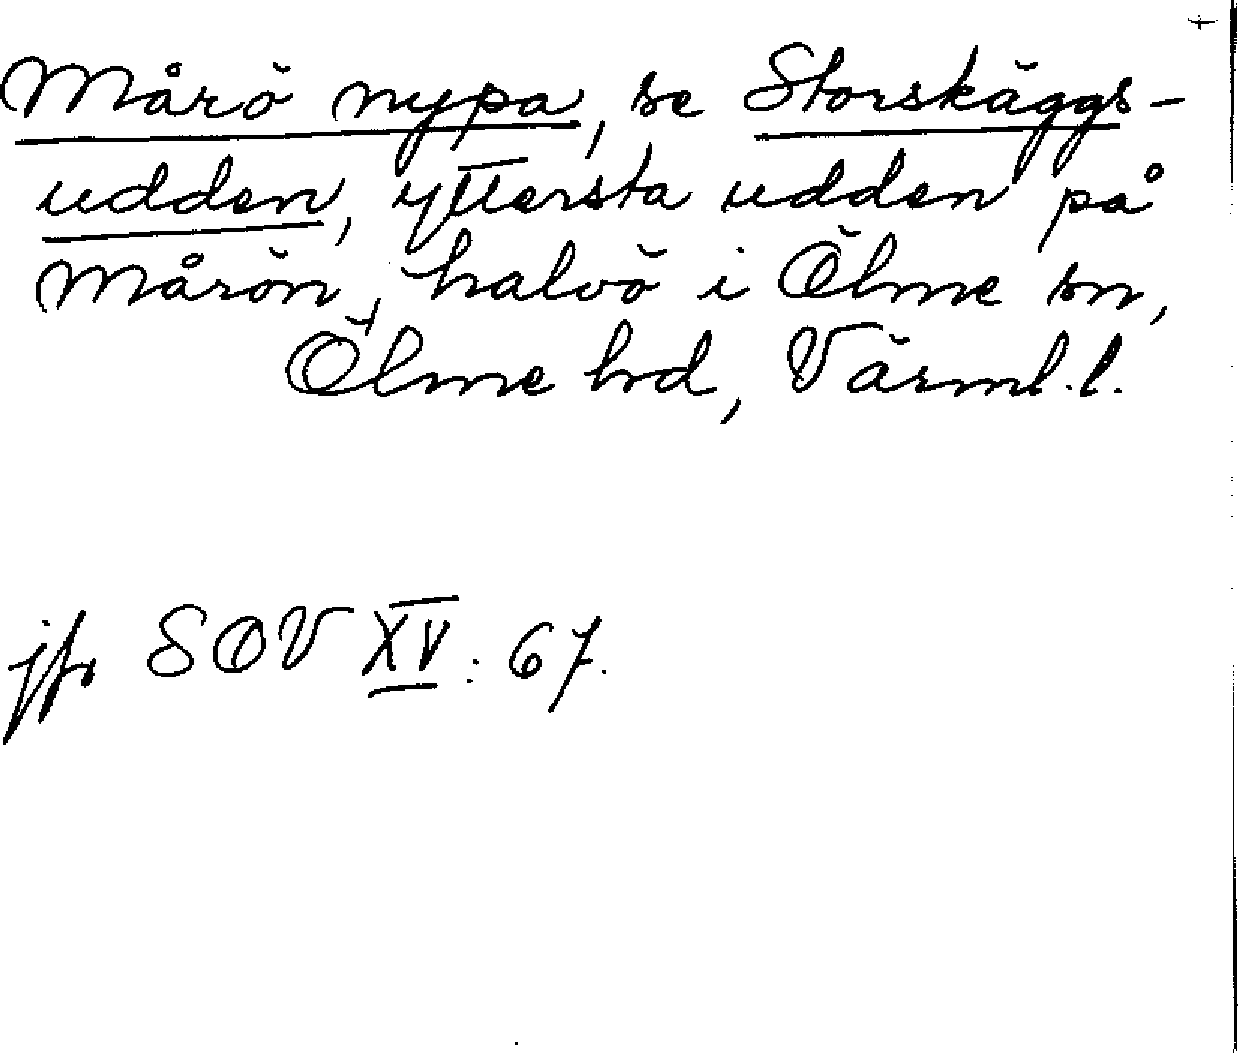 Mårö nypa, se Storskäggs-
udden, yttersta udden på
Mårön, halvö i Ölme sn,
Ölme hd, Värml. l.
jfr SOV XV: 67.